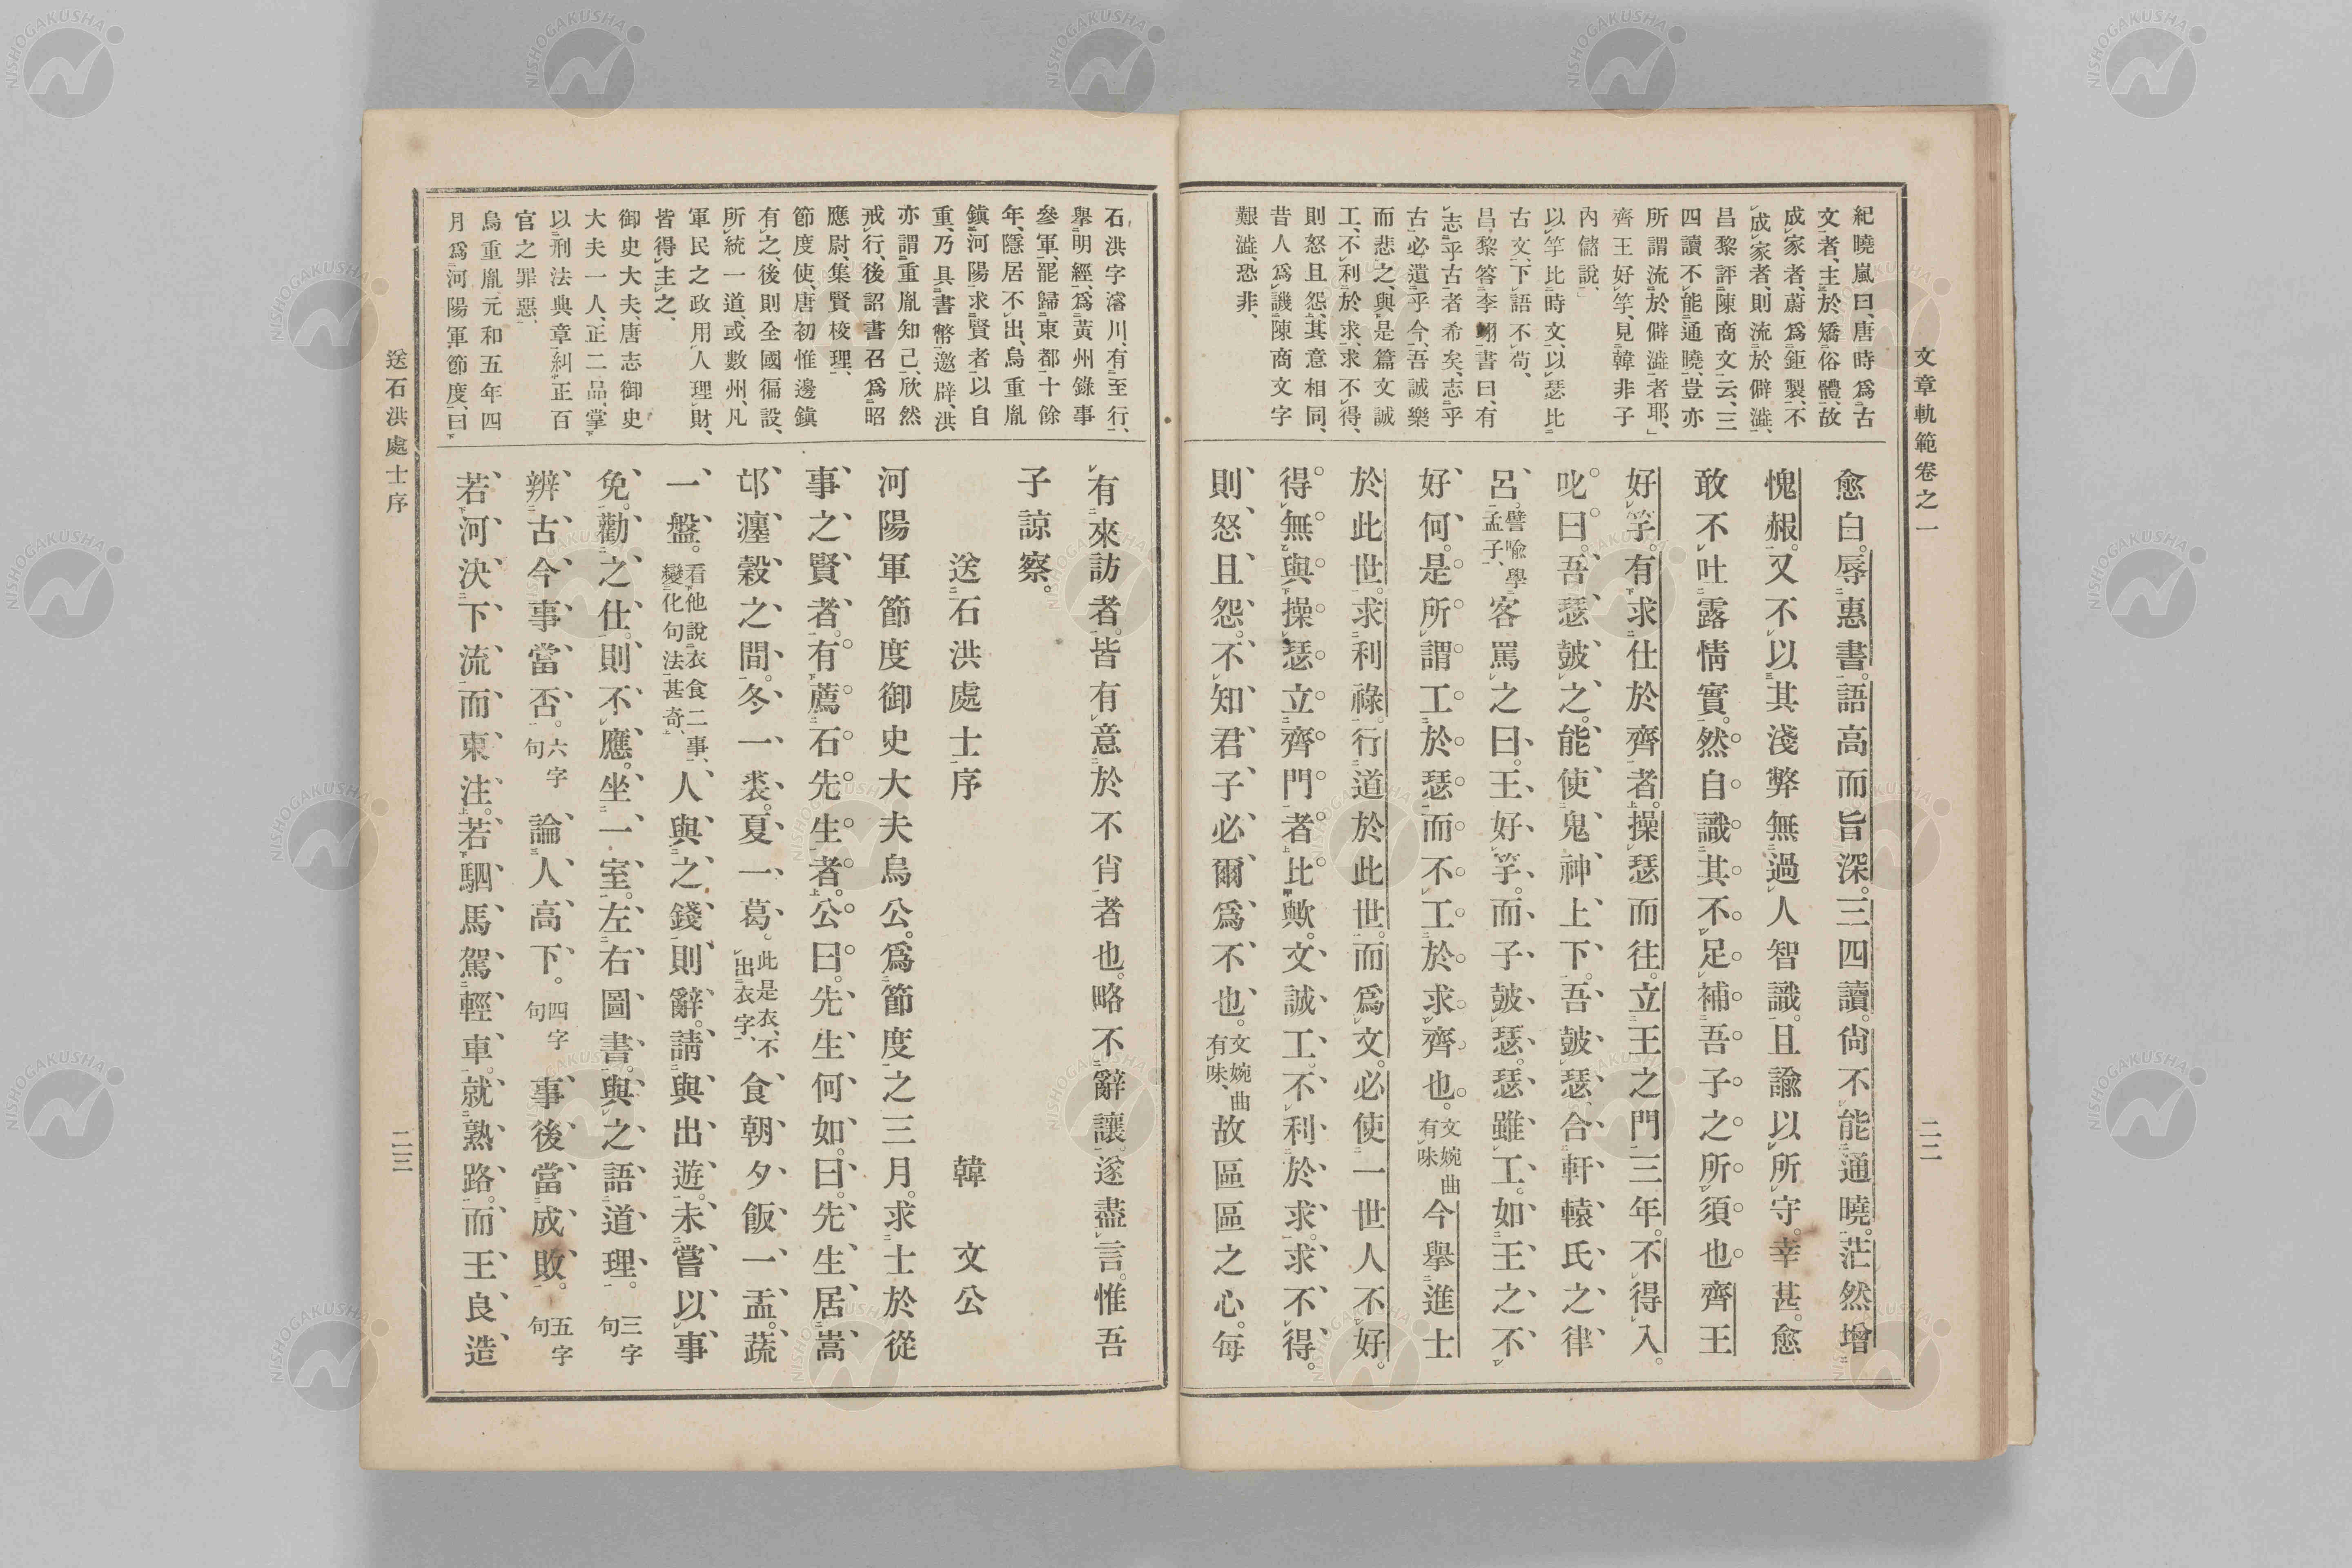 文章軌範卷之一
二二
紀曉嵐曰、唐時爲古
文者、主於矯俗體、故
成家者、蔚爲鉅製、不
成家者、則流於僻澁、
昌黎評陳商文云、三
四讀不能通曉、豈亦
所謂流於僻澁者耶、」
齊王好竽、見韓非子
內儲說、」
以竽比時文、以瑟比
古文、下語不苟、
昌黎答李翊書曰、有
志乎古者希矣、志乎
古、必遺乎今、吾誠樂
而悲之、與是篇文誠
工、不利於求、求不得、
則怒且怨、其意相同、
昔人爲譏陳商文字
艱澁、恐非、
愈白。辱惠書。語高而旨深。三四讀。尙不能通曉。茫然增
愧赧。又不以其淺弊無過人智識。且諭以所守。幸甚。愈
敢不吐露情實。然自識其不足補吾子之所須也齊王
好竽。有求仕於齊者。操瑟而往。立王之門三年。不得入。
叱曰。吾瑟鼓之。能使鬼神上下。吾鼓瑟、合軒轅氏之律
呂。譬喩學孟子、客罵之曰。王好竽。而子鼓瑟。瑟雖工。如王之不
好何。是所謂工於瑟而不工於求齊也。文婉曲有味、今擧進士
於此世。求利祿。行道於此世。而爲文。必使一世人不好。
得無與操瑟立齊門者比歟。文誠工。不利於求。求不得。
則怒且怨。不知君子必爾爲不也。文婉曲有味、故區區之心。每
有來訪者。皆有意於不肖者也。略不辭讓。遂盡言。惟吾
子諒察。
送石洪處士序 韓文公
河陽軍節度御史大夫烏公。爲節度之三月。求士於從
事之賢者。有薦石先生者。公曰。先生何如。曰。先生居嵩
邙瀍穀之間。冬一裘。夏一葛。此是衣、不出衣字、食朝夕飯一盂。蔬
一盤。看他說衣食二事、變化句法甚奇、人與之錢則辭。請與出遊。未嘗以事
免。勸之仕。則不應。坐一室。左右圖書。與之語道理。三字句
辨古今事當否。六字句 論人高下。四字句 事後當成敗。五字句
若河決下流而東注。若駟馬駕輕車。就熟路。而王良造
石洪字濬川、有至行、
擧明經、爲黃州錄事
參軍、罷歸東都十餘
年、隱居不出、烏重胤
鎭河陽、求賢者以自
重、乃具書幣邀辟、洪
亦謂重胤知己、欣然
戒行、後詔書召爲昭
應尉、集賢校理、
節度使、唐初惟邊鎭
有之、後則全國徧設、
所統一道、或數州、凡
軍民之政用人理財、
皆得主之、
御史大夫、唐志御史
大夫一人、正二品、掌
以刑法典章糾正百
官之罪惡、
烏重胤、元和五年四
月爲河陽軍節度、曰
送石洪處士序
二三